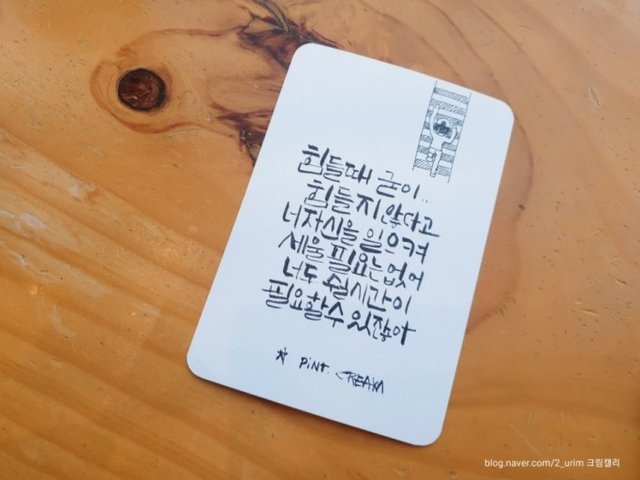 힘들때 굳이...
힘들지 않다고
너 자신을 일으켜
세울 필요는 없어
너도 쉴 시간이
필요할수 있잖아
* PiNT. CREAM
blog.naver.com/2_urim 크림캘리